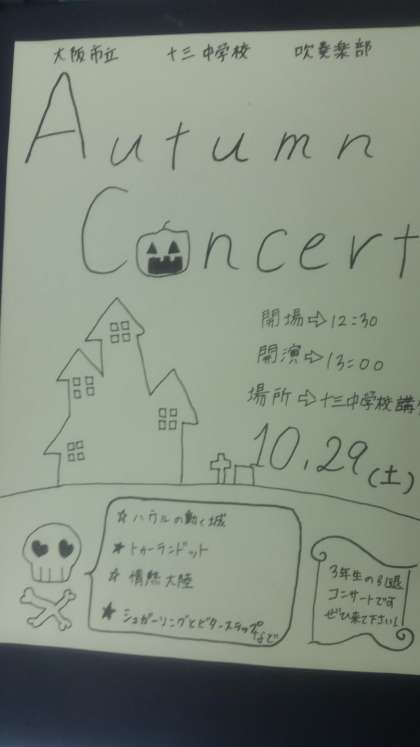 大阪市立 十三中学校 吹奏楽部
Autumn
Concert
開場⇨12:30
開演⇨13:00
場所⇨十三中学校講
10.29(土)
☆ハウルの動く城
★トゥーランドット
☆情熱大陸
★シュガーソングとビターステップ
など
3年生の引退
コンサートです
ぜひ来て下さい!